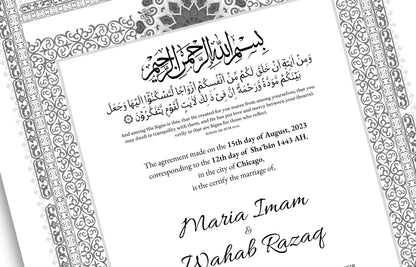 بسم الله الرحمن الرحيم
وَمِنْ آيَاتِهِ أَنْ خَلَقَ لَكُم مِّنْ أَنفُسِكُمْ أَزْوَاجًا لِّتَسْكُنُوا إِلَيْهَا وَجَعَلَ
بَيْنَكُم مَّوَدَّةً وَرَحْمَةً إِنَّ فِي ذَٰلِكَ لَآيَاتٍ لِّقَوْمٍ يَتَفَكَّرُونَ
And among His Signs is this, that He created for you mates from among yourselves, that you
may dwell in tranquility with them, and He has put love and mercy between your (hearts)
verily in that are Signs for those who reflect.
The agreement made on the 15th day of August, 2023
corresponding to the 12th day of Sha'bān 1443 AH,
in the city of Chicago,
is the certify the marriage of,
Maria Imam
&
Wahab Razaq